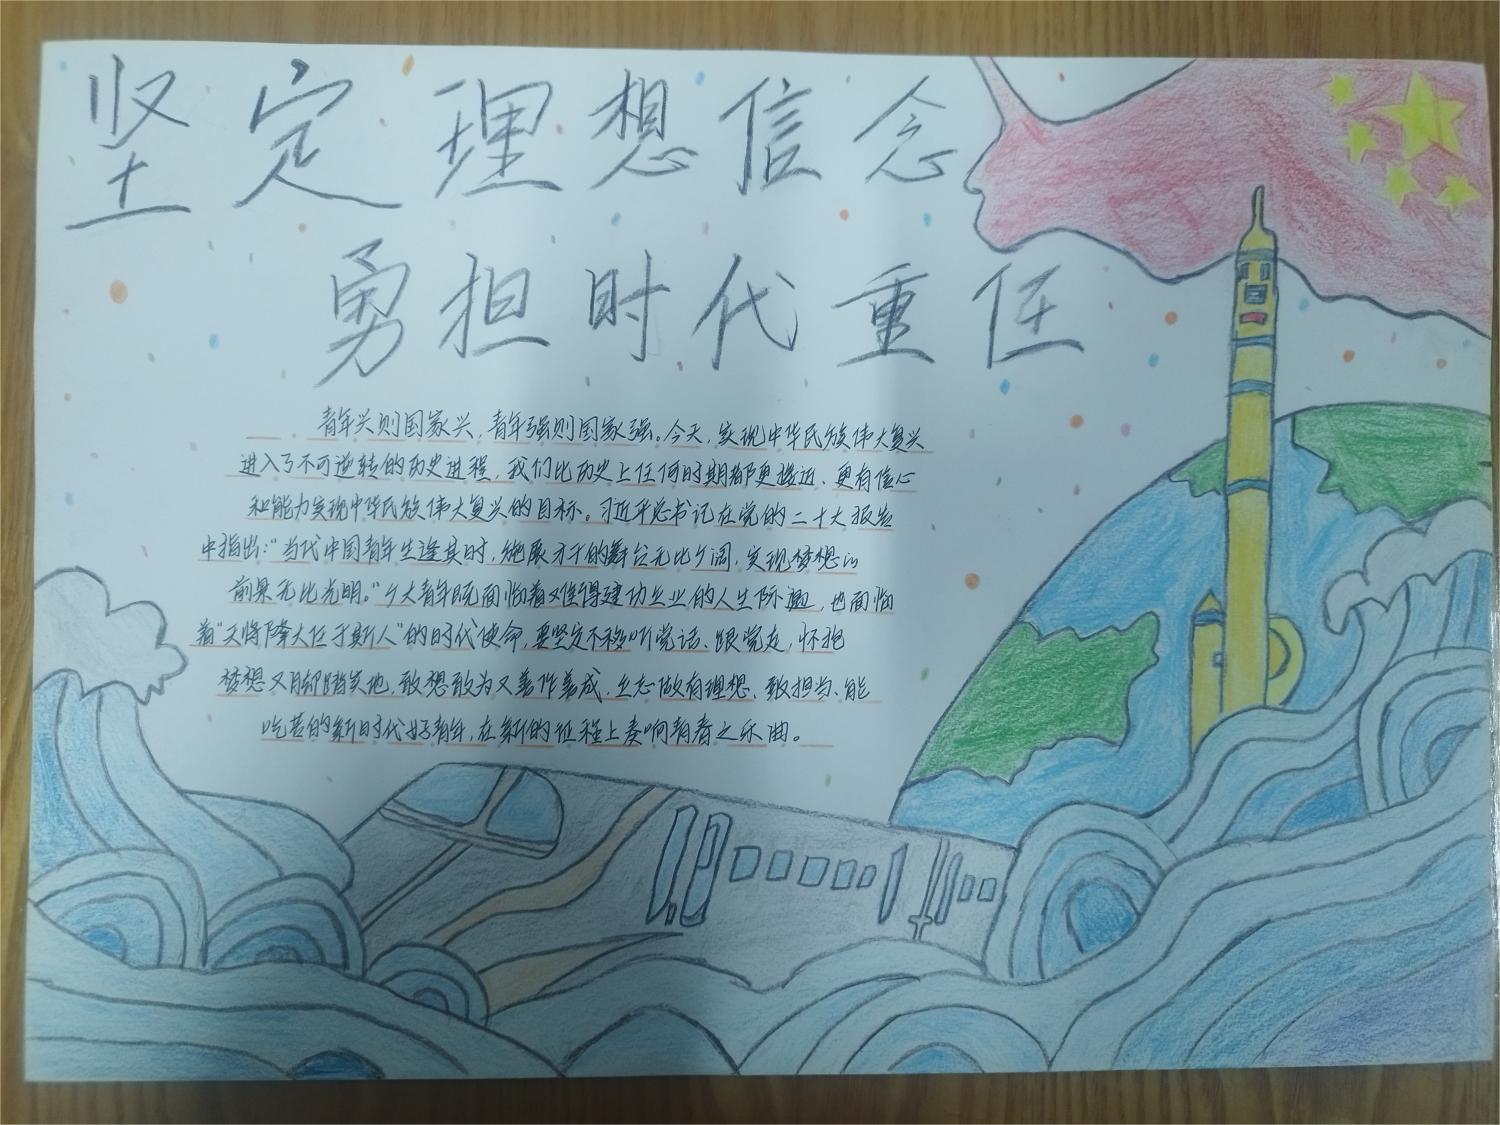 坚定理想信念
勇担时代重任
青年兴则国家兴,青年强则国家强。今天,实现中华民族伟大复兴
进入了不可逆转的历史进程,我们比历史上任何时期都更接近、更有信心
和能力实现中华民族伟大复兴的目标。习近平总书记在党的二十大报告
中指出:“当代中国青年生逢其时,施展才干的舞台无比广阔,实现梦想的
前景无比光明。”广大青年既面临着难得建功立业的人生际遇,也面临
着“天将降大任于斯人”的时代使命,要坚定不移听党话、跟党走,怀抱
梦想又脚踏实地,敢想敢为又善作善成,立志做有理想、敢担当、能
吃苦的新时代好青年,在新的征程上奏响青春之乐曲。